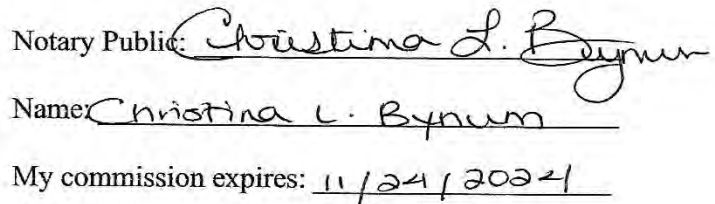 Notary Public: Christina L. Bynum
Name: Christina L. Bynum
My commission expires: 11/24/2024